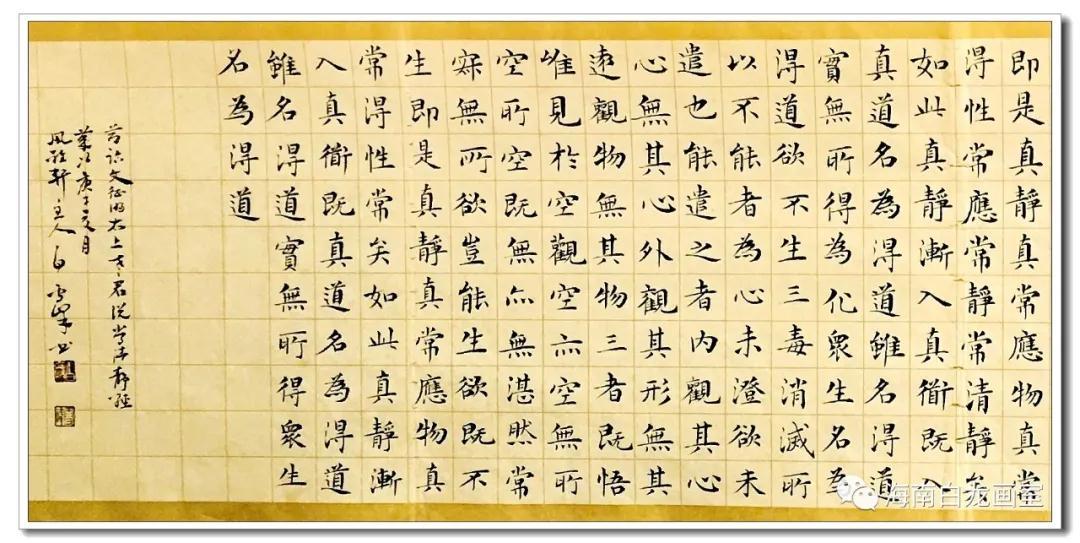 即是真靜真常應物真常
得性常應常靜常清靜矣
如此真靜漸入真衜既入
真道名為淂道雖名得道
實無所得為化眾生名為
淂道欲不生三毒消滅所
以不能者為心未澄欲未
遣也能遣之者内觀其心
心無其心外觀其形無其
遠觀物無其物三者既悟
唯見於空觀空亦空無所
空所空既無亦無湛然常
寂無所欲豈能生欲既不
生即是真靜真常應物真
常得性常矣如此真靜漸
入真衜既真道名為淂道
雖名淂道實無所得眾生
名為淂道
文征明太上老君説常清靜經
庚子月
主人白
海南白龙画室